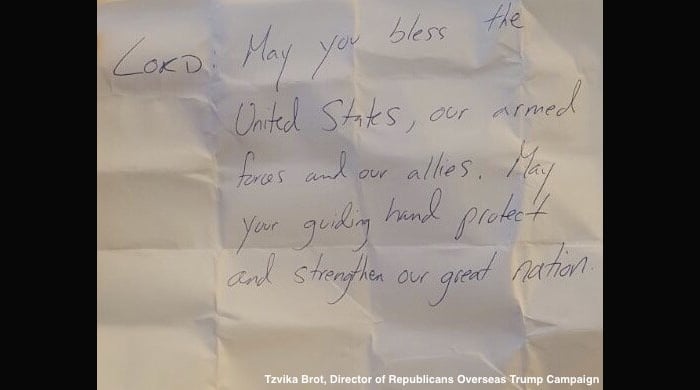 LORD: May you bless the
United States, our armed
forces and our allies. May
your guiding hand protect
and strengthen our great nation.
Tzvika Brot, Director of Republicans Overseas Trump Campaign